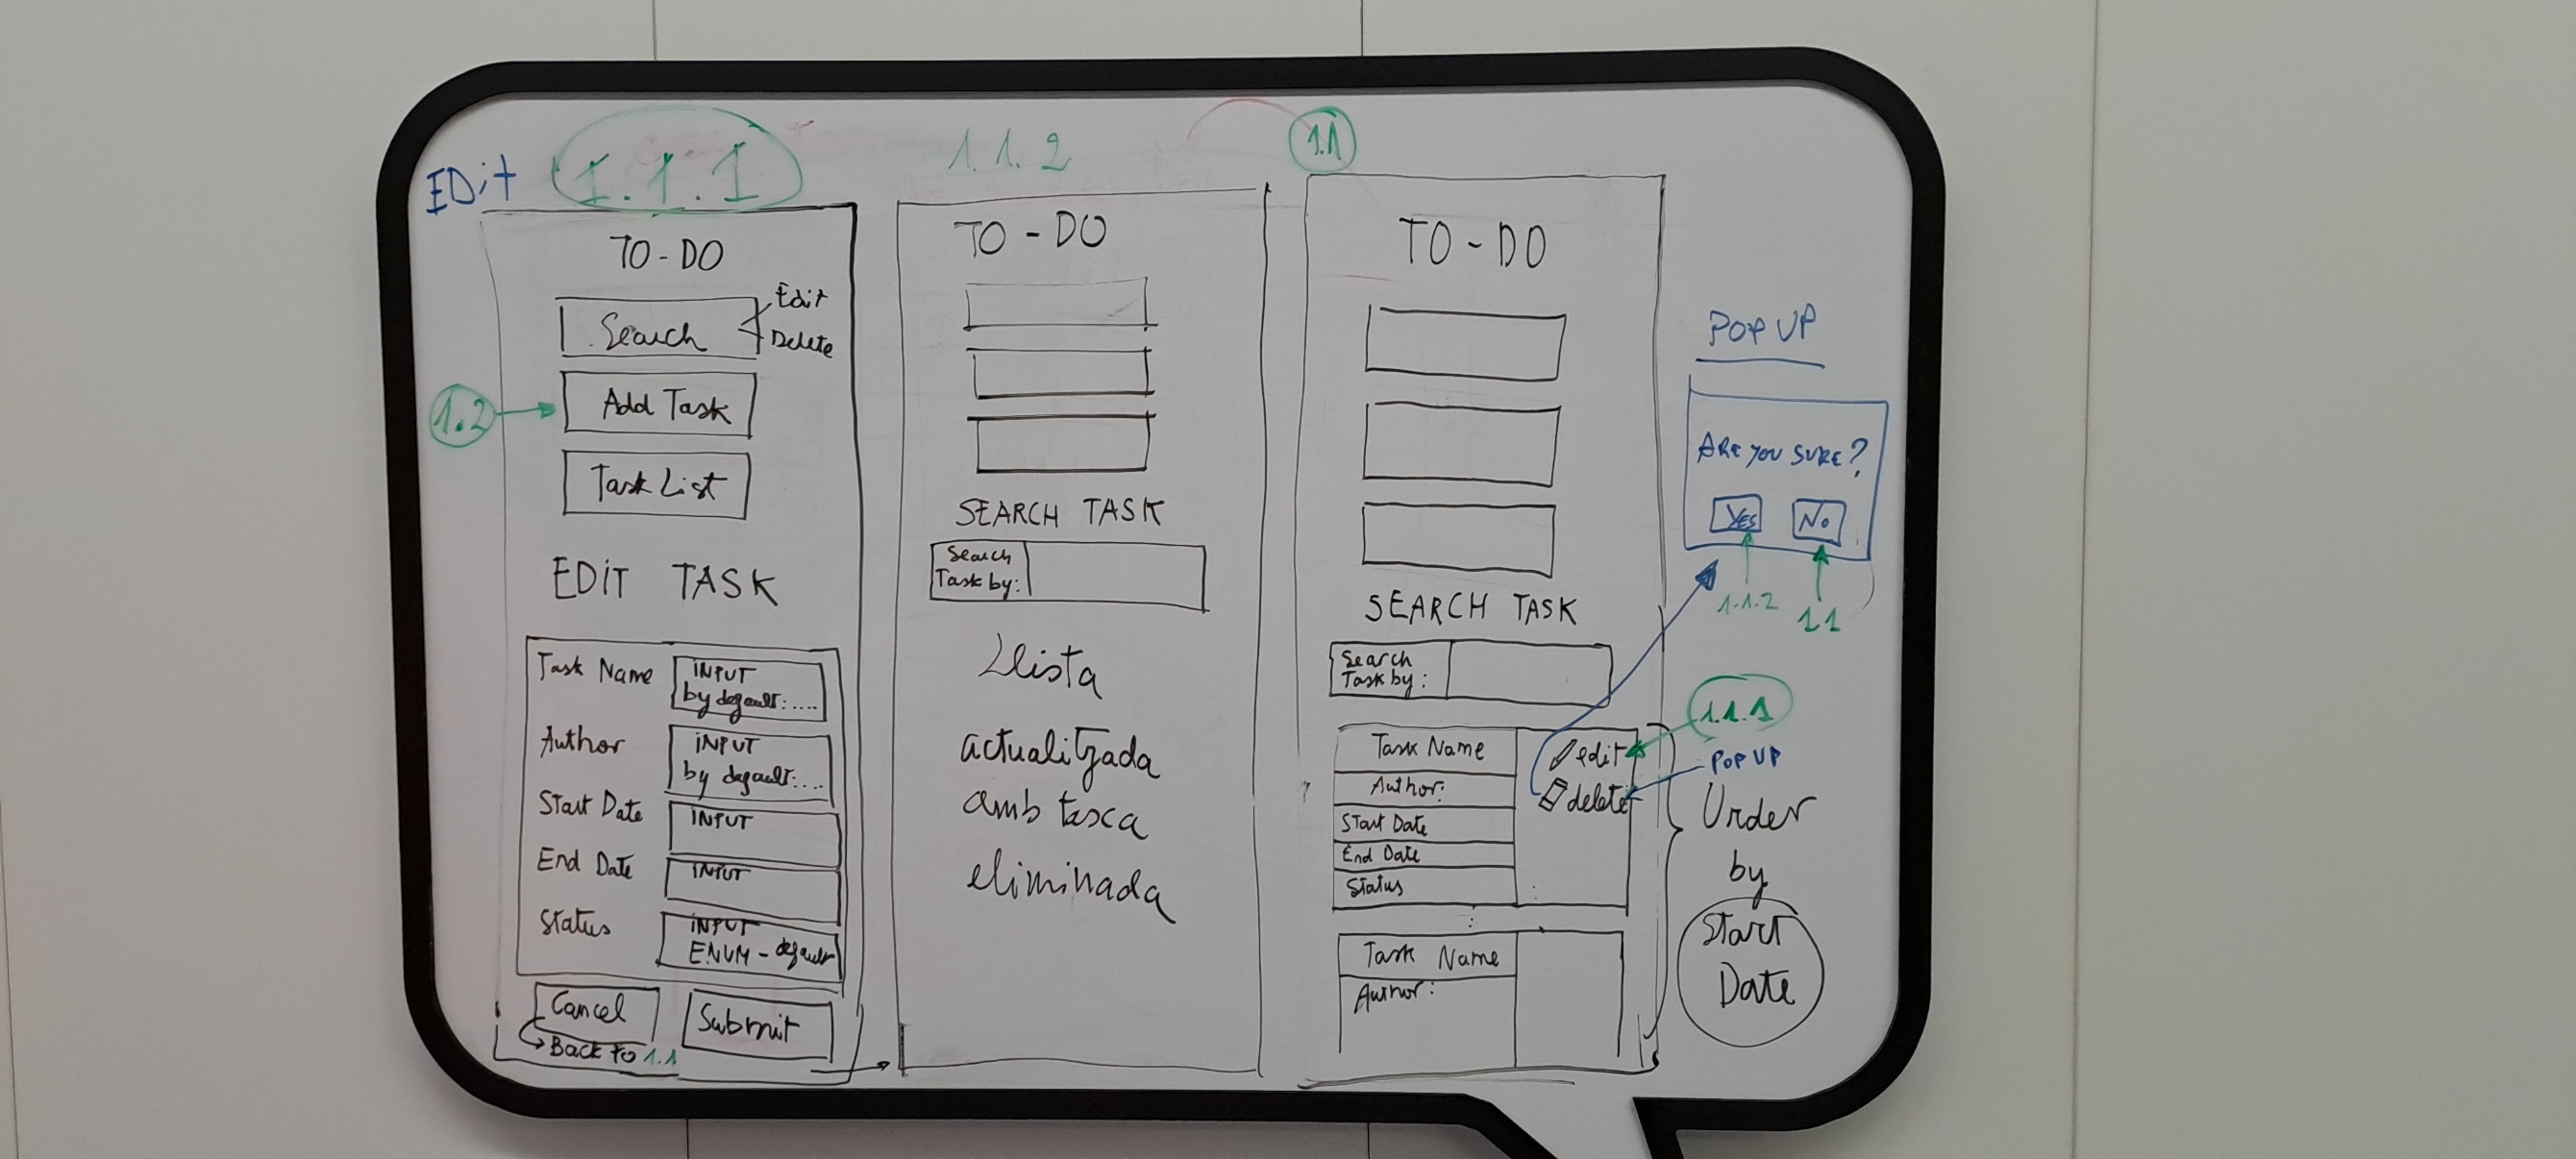 EDit
1.1.1
TO-DO
Search
Edit
Delete
1.2
Add Task
Task List
EDIT TASK
Task Name
INPUT
by default: ....
Author
INPUT
by default: ....
Start Date
INPUT
End Date
INPUT
Status
INPUT
ENUM - default
Cancel
Submit
Back to 1.1
1.1.2
TO-DO
SEARCH TASK
Search
Task by:
Llista
actualitzada
amb tasca
eliminada
1.1
TO-DO
SEARCH TASK
Search
Task by:
Task Name
Author:
Start Date
End Date
Status
edit
delete
Task Name
Author:
POP UP
ARE YOU SURE?
YES
NO
1.1.2
1.1
1.1.1
POP UP
Order
by
Start
Date